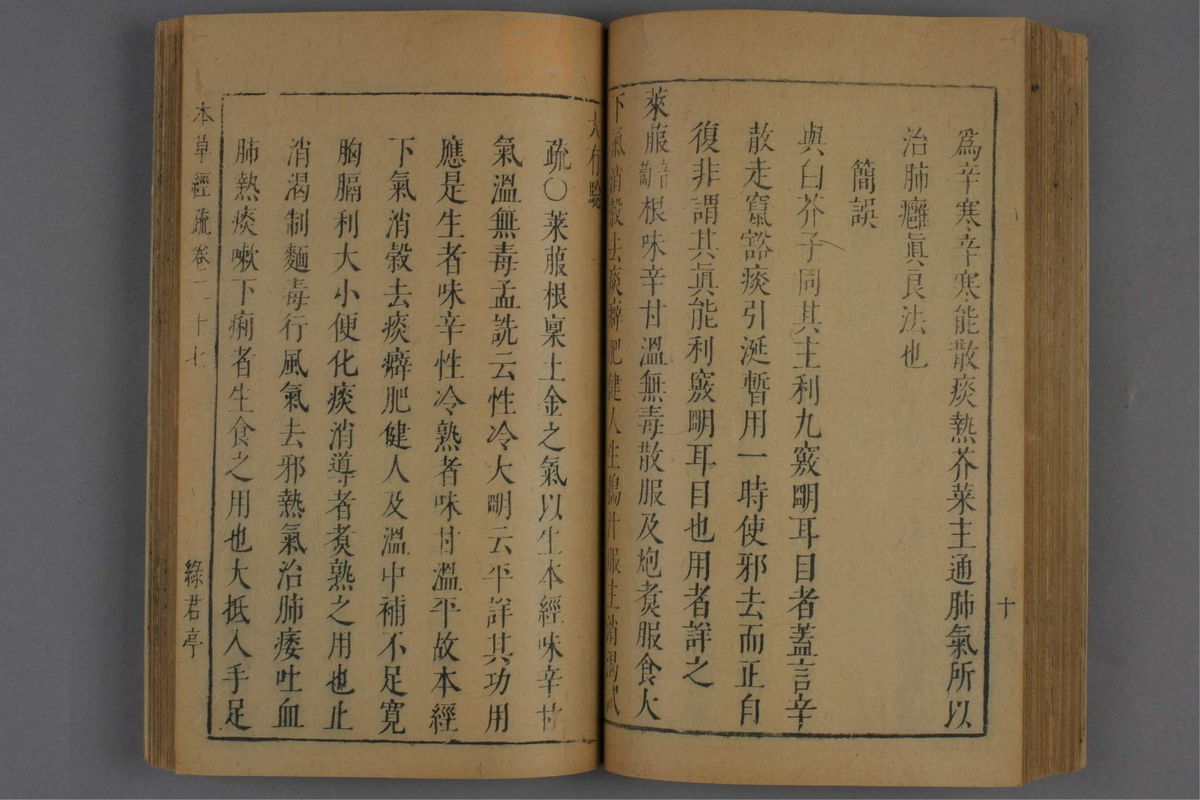 爲辛寒辛寒能散痰熱芥菜主通肺氣所以
治肺癰眞良法也
簡誤
與白芥子同其主利九竅朙耳目者蓋言辛
散走竄豁痰引涎暫用一時使邪去而正自
復非謂其眞能利竅朙耳目也用者詳之
萊菔音蔔根味辛甘溫無毒散服及炮煑服食大
下氣消穀去痰癖肥健人生搗汁服主消渴試
大有驗
十
疏〇萊菔根稟土金之氣以生本經味辛甘
氣溫無毒孟詵云性冷大朙云平詳其功用
應是生者味辛性冷熟者味甘溫平故本經
下氣消穀去痰癖肥健人及溫中補不足寬
胸膈利大小便化痰消導者煑熟之用也止
消渴制麵毒行風氣去邪熱氣治肺痿吐血
肺熱痰嗽下痢者生食之用也大抵入手足
本草經疏卷二十七
綠君亭